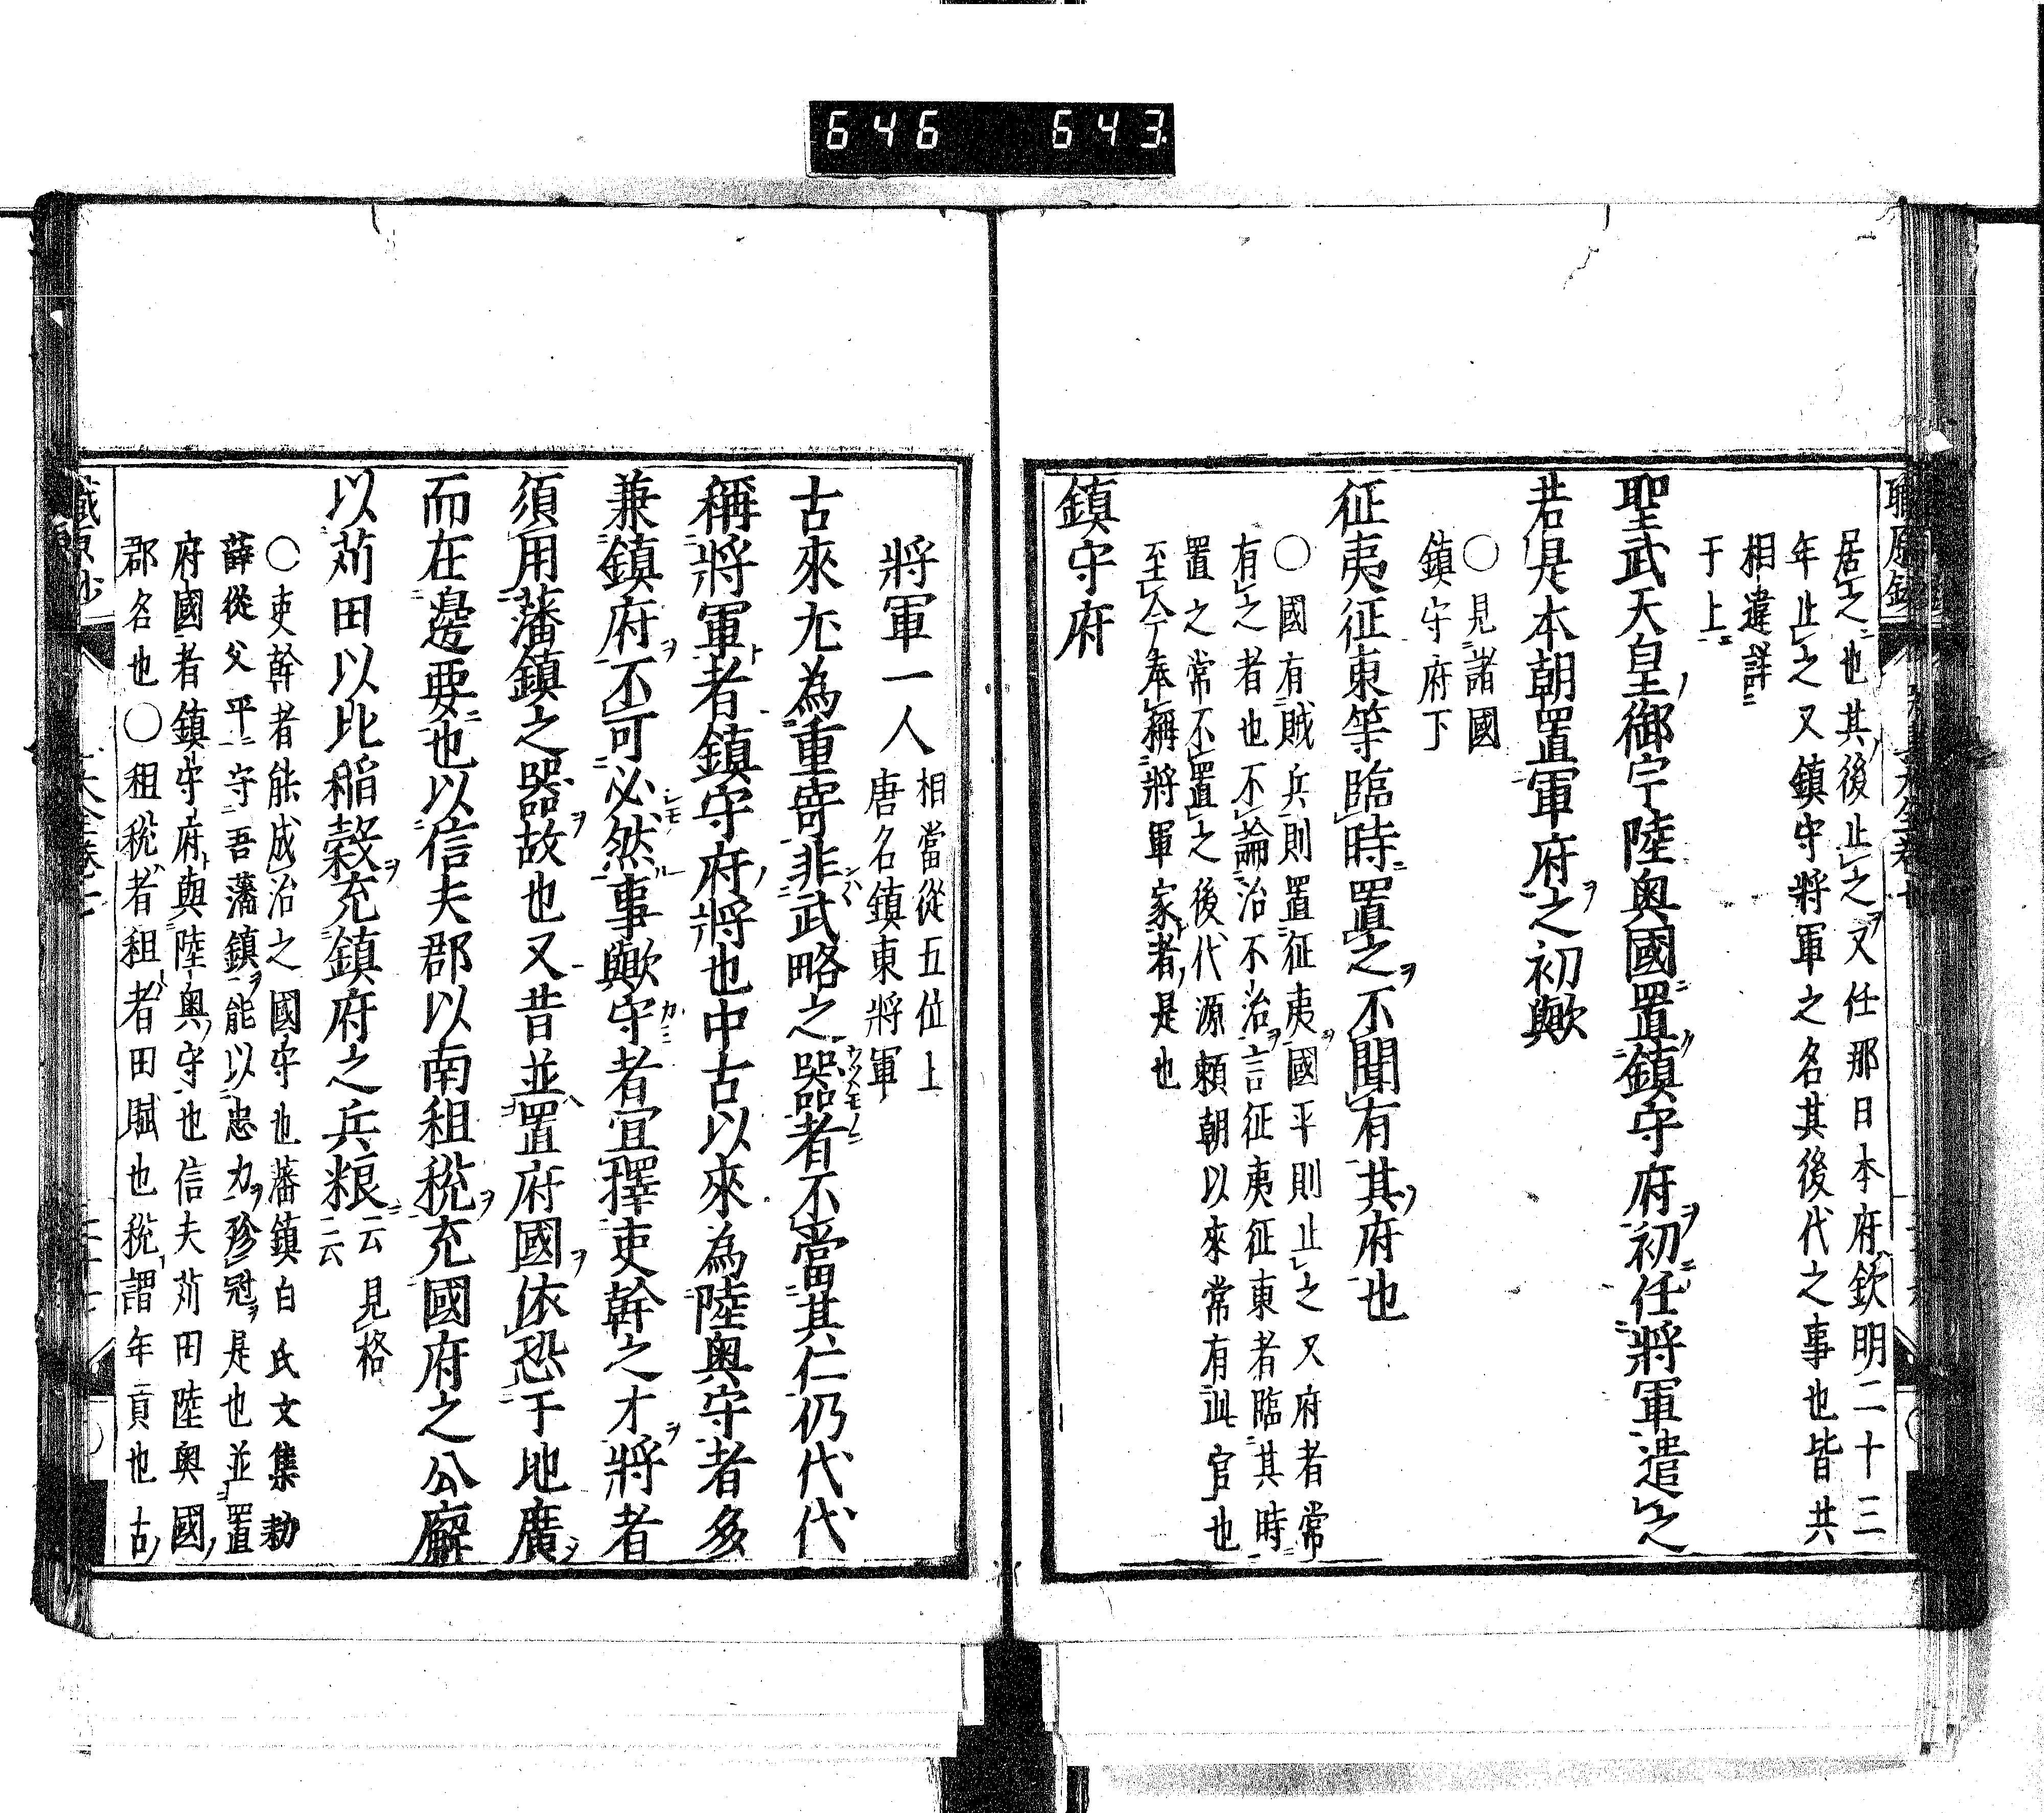 646 643
居之也其後止之又任那日本府欽明二十三
年止之又鎮守將軍之名其後代之事也皆共
相違詳
于上
聖武天皇御宇陸奧國置鎮守府初任將軍遣之
若是本朝置軍府之初歟
〇見諸國
鎮守府下
征夷征東等臨時置之不聞有其府也
〇國有賊兵則置征夷國平則止之又府者常
有之者也不論治不治言征夷征東者臨其時
置之常不置之後代源賴朝以來常有此官也
至今奉稱將軍家者是也
鎮守府
將軍一人
相當從五位上
唐名鎮東將軍
古來尤為重寄非武略之器者不當其仁仍代代
稱將軍者鎮守府將也中古以來為陸奧守者多
兼鎮府不可必然事歟守者宜擇吏幹之才將者
須用藩鎮之器故也又昔並置府國依恐于地廣
而在邊要也以信夫郡以南租稅充國府之公廨
以苅田以北稲穀充鎮府之兵粮
云云
見格
〇吏幹者能成治之國守也藩鎮白氏文集勅
薛從父平守吾藩鎮能以忠力珍冦是也並置
府國者鎮守府與陸奧守也信夫苅田陸奧國
郡名也〇租稅者租者田賦也稅謂年貢也古